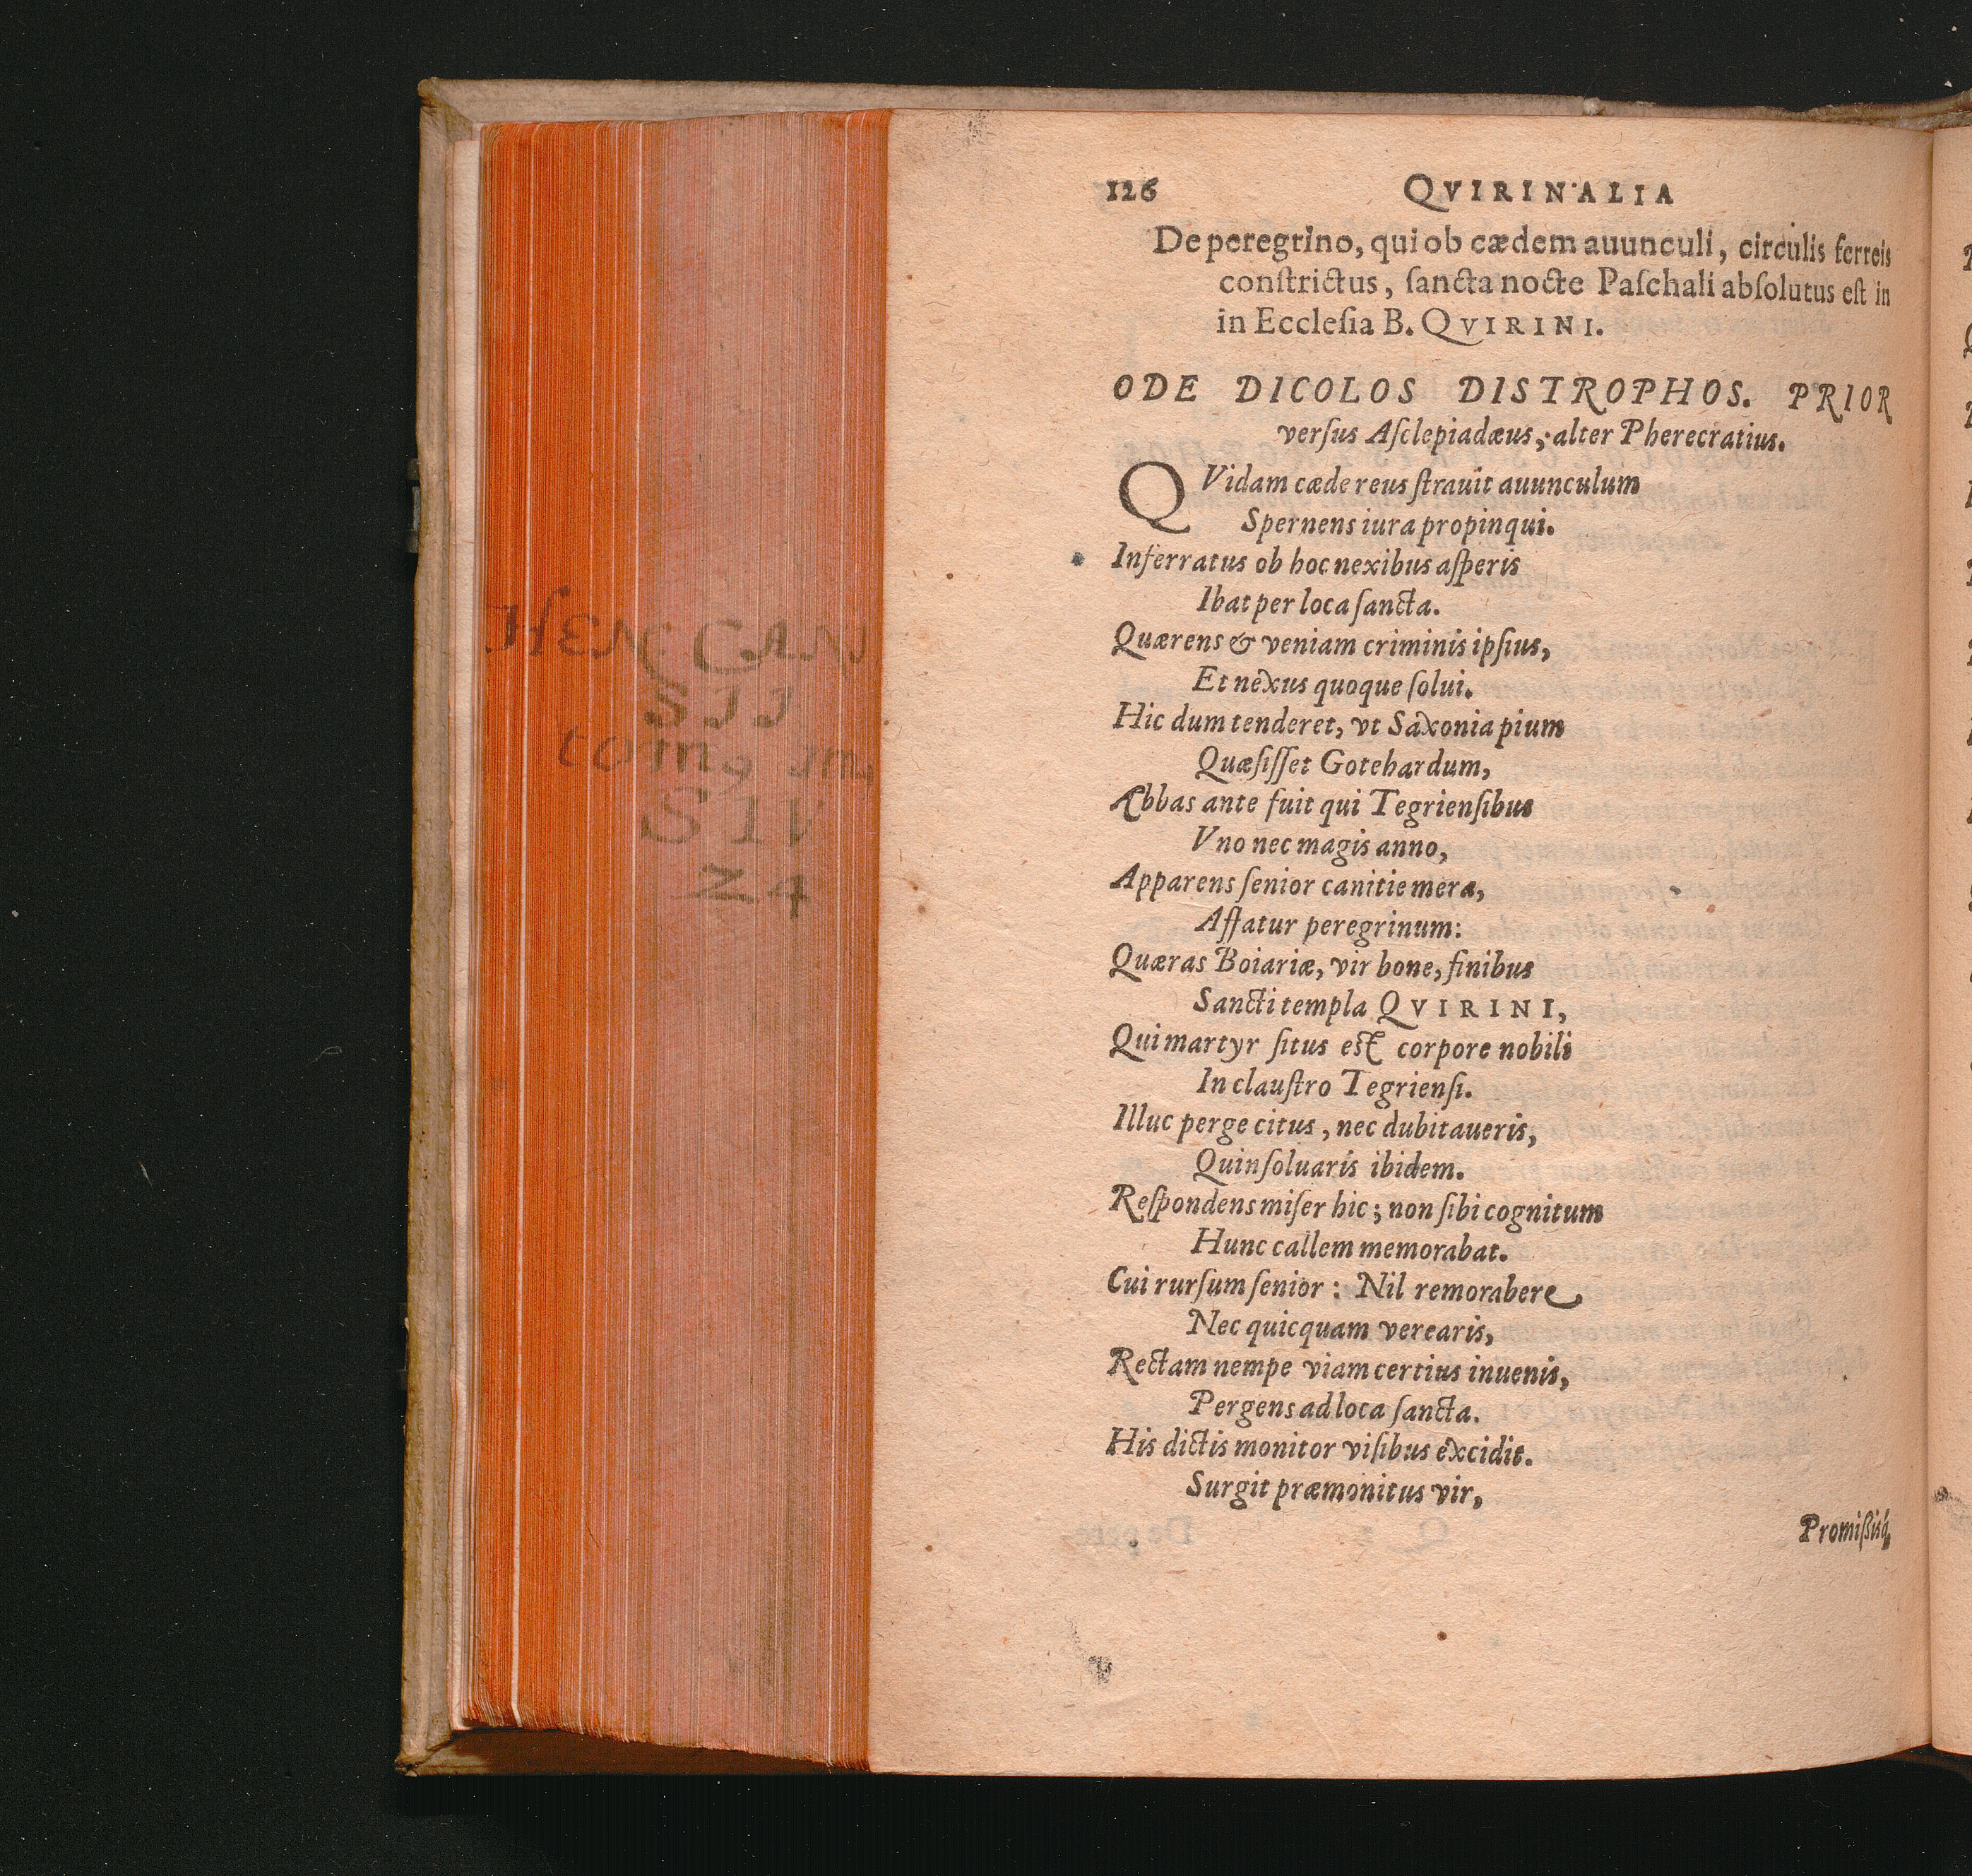 126 QVIRINALIA
De peregrino, qui ob cædem auunculi, circulis ferreis
conſtrictus, ſancta nocte Paſchali abſolutus eſt in
in Eccleſia B. QVIRINI.
ODE DICOLOS DISTROPHOS. PRIOR
verſus Aſclepiadæus, alter Pherecratius.
QVidam cæde reus ſtrauit auunculum
Spernens iura propinqui.
Inferratus ob hoc nexibus aſperis
Ibat per loca ſancta.
Quærens & veniam criminis ipſius,
Et nexus quoque ſolui.
Hic dum tenderet, vt Saxonia pium
Quæſiſſet Gotehardum,
Abbas ante fuit qui Tegrienſibus
Vno nec magis anno,
Apparens ſenior canitie mera,
Affatur peregrinum:
Quæras Boiariæ, vir bone, finibus
Sancti templa QVIRINI,
Qui martyr ſitus eſt corpore nobili
In clauſtro Tegrienſi.
Illuc perge citus, nec dubitaueris,
Quin ſoluaris ibidem.
Reſpondens miſer hic; non ſibi cognitum
Hunc callem memorabat.
Cui rurſum ſenior: Nil remorabere
Nec quicquam verearis,
Rectam nempe viam certius inuenis,
Pergens ad loca ſancta.
His dictis monitor viſibus excidit.
Surgit præmonitus vir,
Promiſsiſq́;
HEN CAN
SII
tomg
S IV
Z4